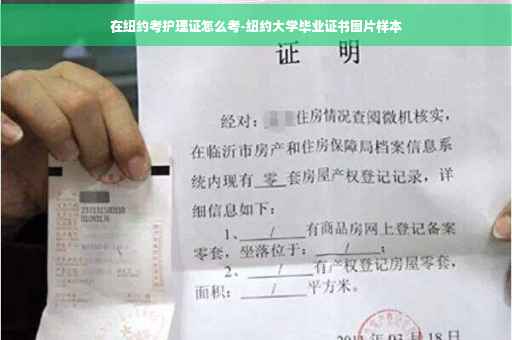 在纽约考护理证怎么考-纽约大学毕业证书图片样本
证 明
经对：住房情况查阅微机核实，
在临沂市房产和住房保障局档案信息系
统内现有 零 套房屋产权登记记录，详
细信息如下：
1、 / 有商品房网上登记备案
零套，坐落位于： / ；
2、 / 有产权登记房屋零套，
面积： / 平方米。
03 月 18 日